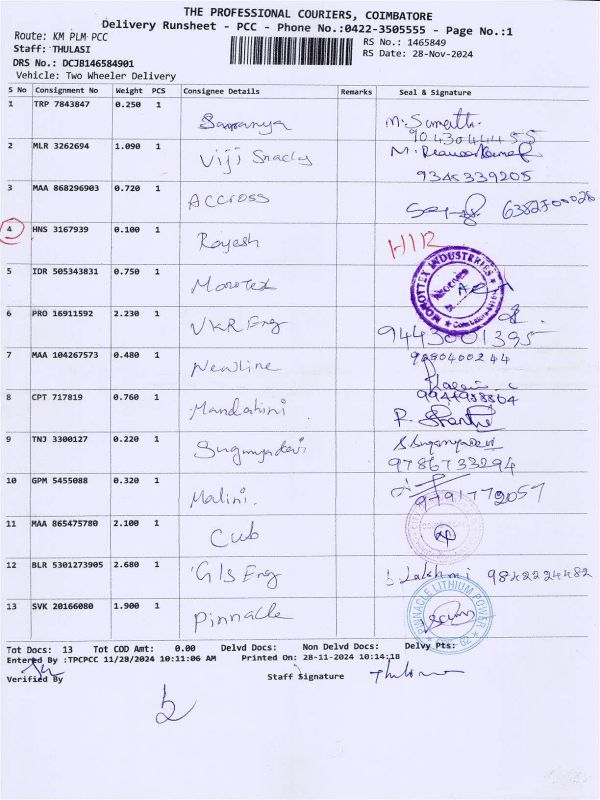 THE PROFESSIONAL COURIERS, COIMBATORE
Delivery Runsheet - PCC - Phone No.:0422-3505555 - Page No.:1
Route: KM PLM PCC
RS No.: 1465849
Staff: THULASI
RS Date: 28-Nov-2024
DRS No.: DCJB146584901
Vehicle: Two Wheeler Delivery
S No Consignment No Weight PCS Consignee Details Remarks Seal & Signature
1 TRP 7843847 0.250 1
9043044455
2 MLR 3262694 1.090 1 Viji Snacks M.
9345339205
3 MAA 868296903 0.720 1 Accross
4 HNS 3167939 0.100 1 Rajesh
5 IDR 505343831 0.750 1 Morotex MOROTTEX INDUSTRIES RECEIVED Coimbatore
6 PRO 16911592 2.230 1 VKR Eng 9443001395
7 MAA 104267573 0.480 1 Newline
8 CPT 717819 0.760 1 Mandahini
9 TNJ 3300127 0.220 1 Sugunyadevi
9786733294
10 GPM 5455088 0.320 1 Malini.
9791772057
11 MAA 865475780 2.100 1 Cub
12 BLR 5301273905 2.680 1 GIS Eng Lakshmi 9842224482
13 SVK 20166080 1.900 1 Pinnacle PINNACLE LITHIUM POWER
Tot Docs: 13 Tot COD Amt: 0.00 Delvd Docs: Non Delvd Docs: Delvy Pts:
Entered By :TPCPCC 11/28/2024 10:11:06 AM Printed On: 28-11-2024 10:14:18
Verified By Staff Signature